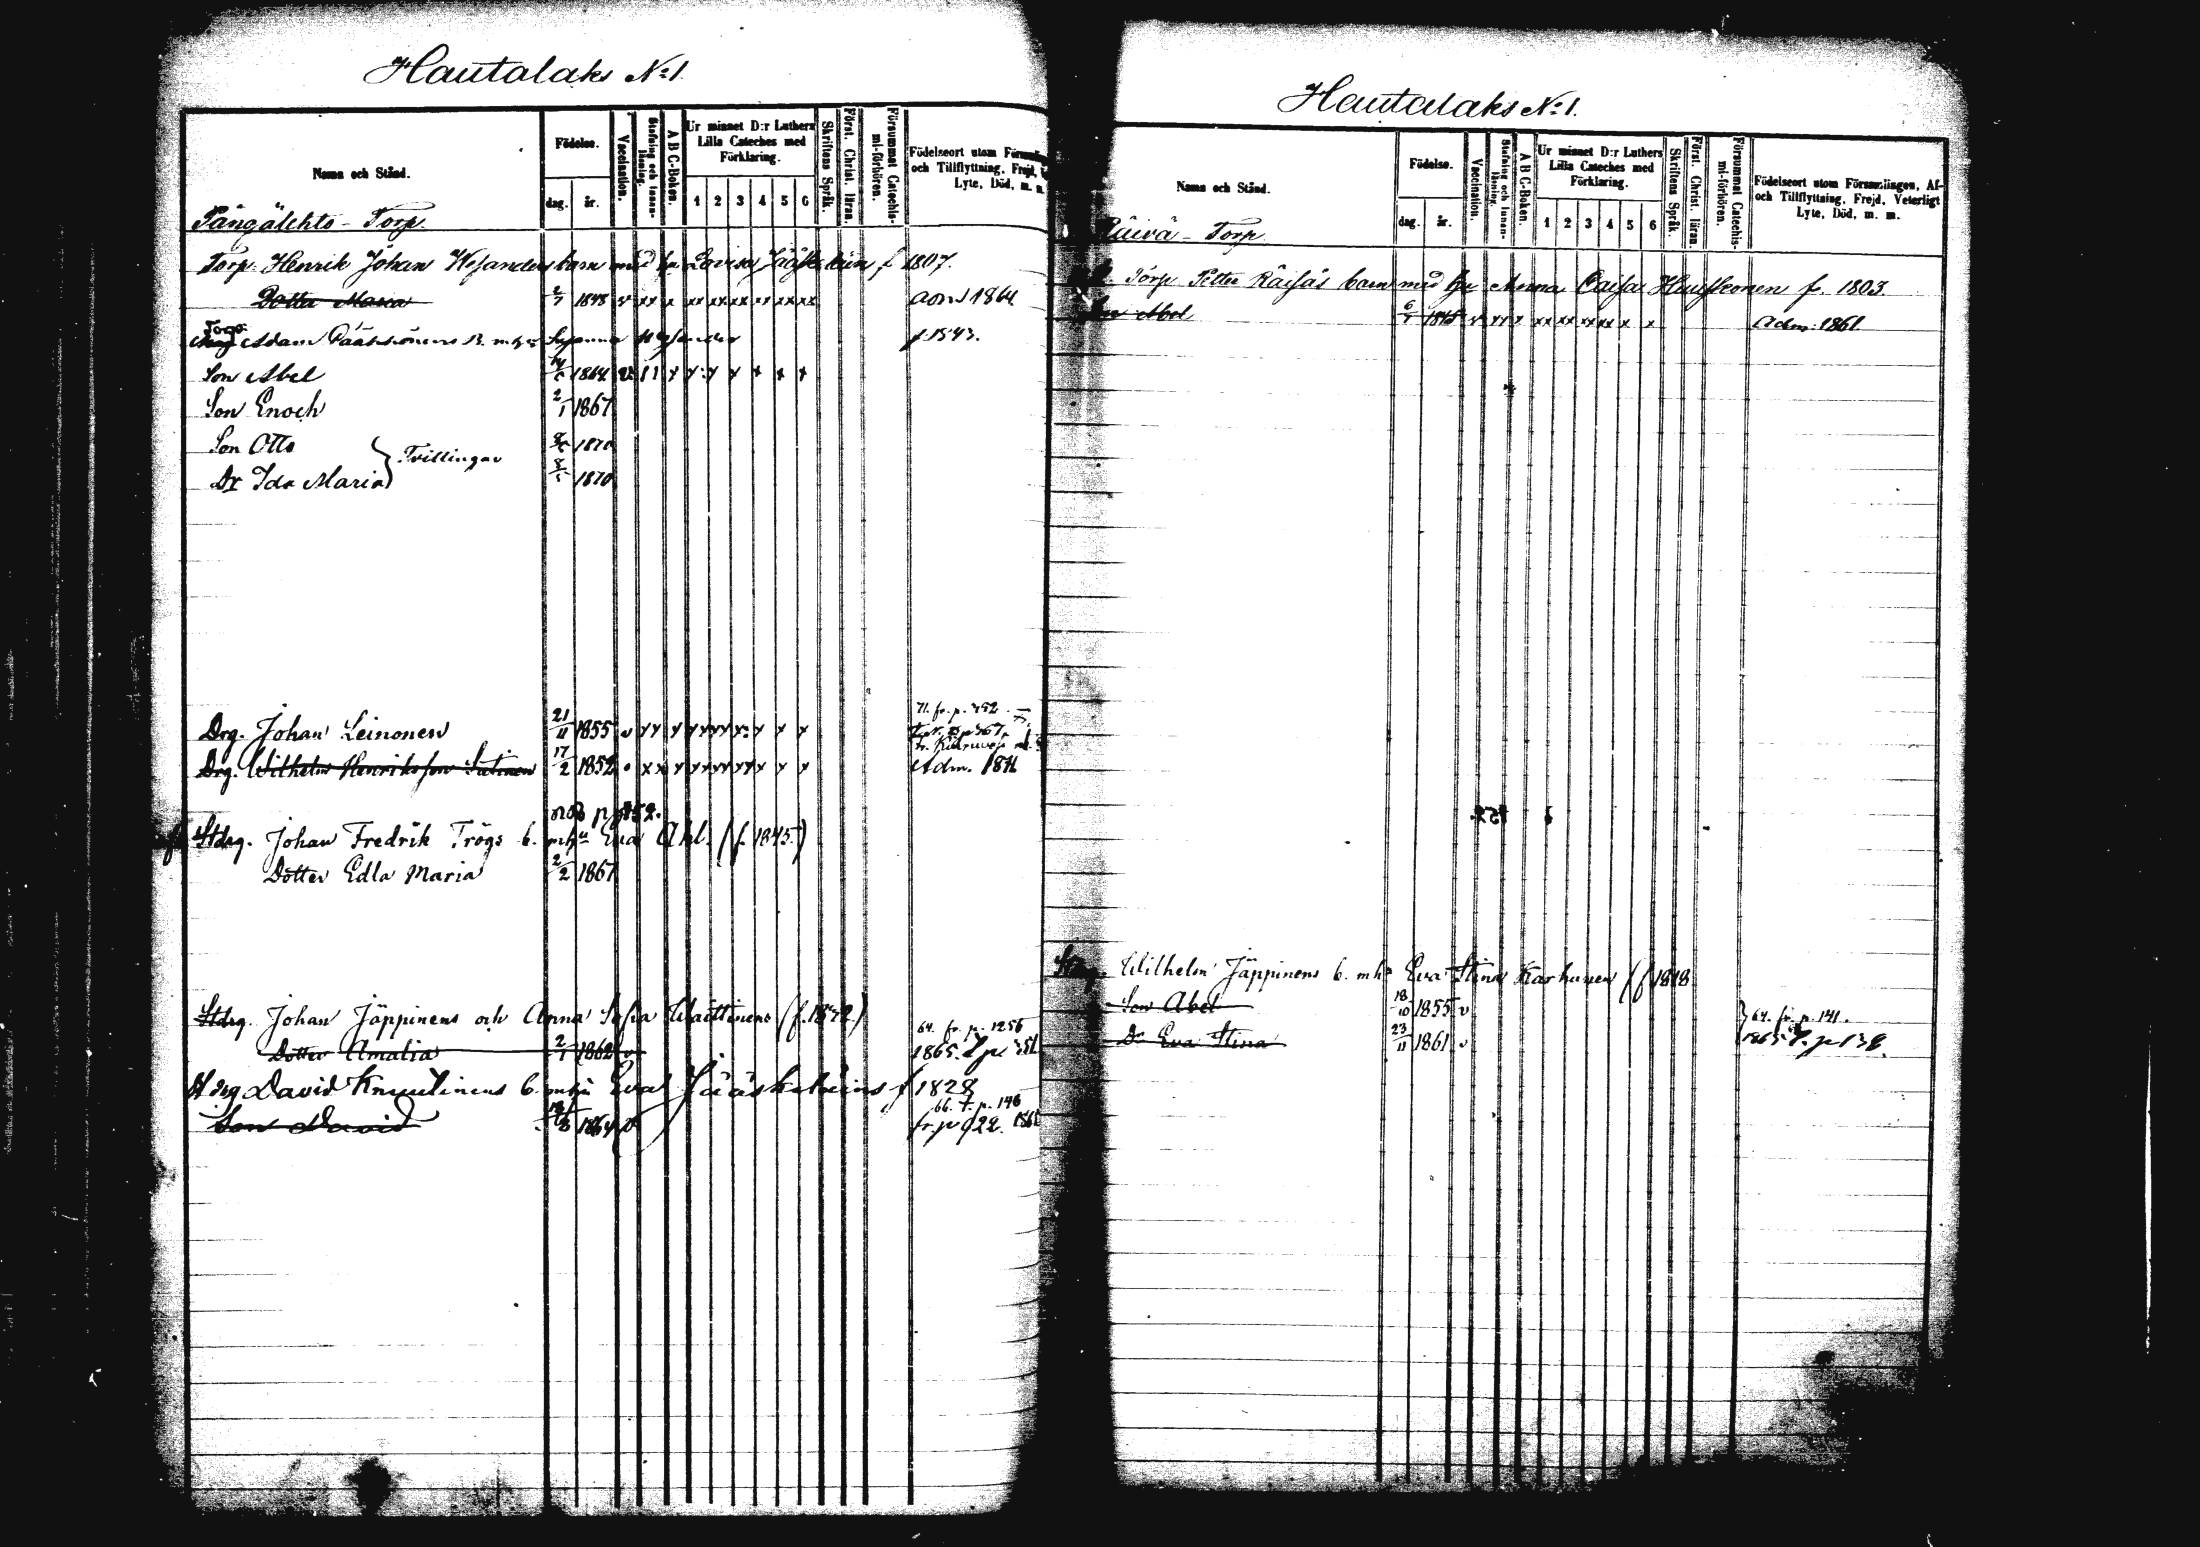 Hautalaks No 1.
Namn och Stånd.
Födelse.
dag. år.
Vaccination.
Stafning och Innanläsning.
A B C-Boken.
Ur minnet D:r Luthers Lilla Cateches med Förklaring.
1 2 3 4 5 6
Skriftens Språk.
Först. Christ. läran.
Försummat Catechismi-förhören.
Födelseort utom
och Tillflyttning, Frejd,
Lyte, Död, m. m.
Torp.
Torp. Henrik Johan barn med Lovisa f 1807.
Dotter Maria 2/7 1848 v xx x xx xx xx xx xx Adm 1864
Torp. Adam m. h.
Son Abel 1864
Son Enoch 2/1 1867
Son Otto 1870
Tvillingar
Dr Ida Maria 1870
71. fr. p. 752
Drg. Johan Leinonen 21/11 1855 v
Drg. Wilhelm Henriksson 17/2 1852 Adm. 1871
Stdrg. Johan Fredrik Trögs b. mhu Eva Ahl. (f. 1845.)
Dotter Edla Maria 2/2 1867
Stdrg. Johan Jäppinens och Anna Sofia (f. 1842.)
64. fr. p. 1256
Dotter Amalia 2/1 1862 v 1865. T. p. 351
St drg David Knuutinens b. mhu Eva Jääskeläins f 1828
66. T. p. 146
Son David 1864 v fr. p 922. 1865
Hautalaks No 1.
Namn och Stånd.
Födelse.
dag. år.
Vaccination.
Stafning och Innanläsning.
A B C-Boken.
Ur minnet D:r Luthers Lilla Cateches med Förklaring.
1 2 3 4 5 6
Skriftens Språk.
Först. Christ. läran.
Försummat Catechismi-förhören.
Födelseort utom Församlingen, Af-
och Tillflyttning, Frejd, Veterligt
Lyte, Död, m. m.
Päivä - Torp.
Torp. Petter Räisäs barn med hu Anna Caisa f. 1803.
Son Abel 6/7 1845 Adm: 1861
Wilhelm Jäppinens b. mhu Eva Stina Karhunen (f 1818
Son Abel 18/10 1855 v
64. fr. p. 141.
Dr Eva Stina 23/11 1861 v 1865 T. p 138.